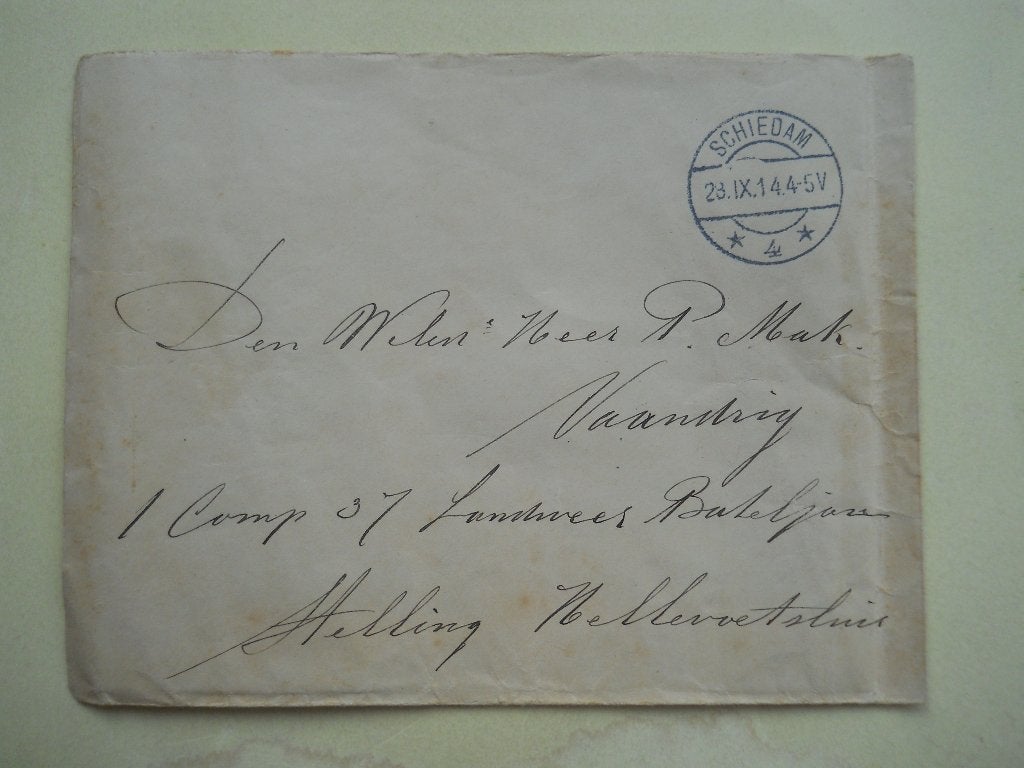 SCHIEDAM
23.IX.14.4-5V
4
Den WelEd. Heer P. Mak.
Vaandrig
1 Comp 37 Landweer Bateljon
Stelling Hellevoetsluis